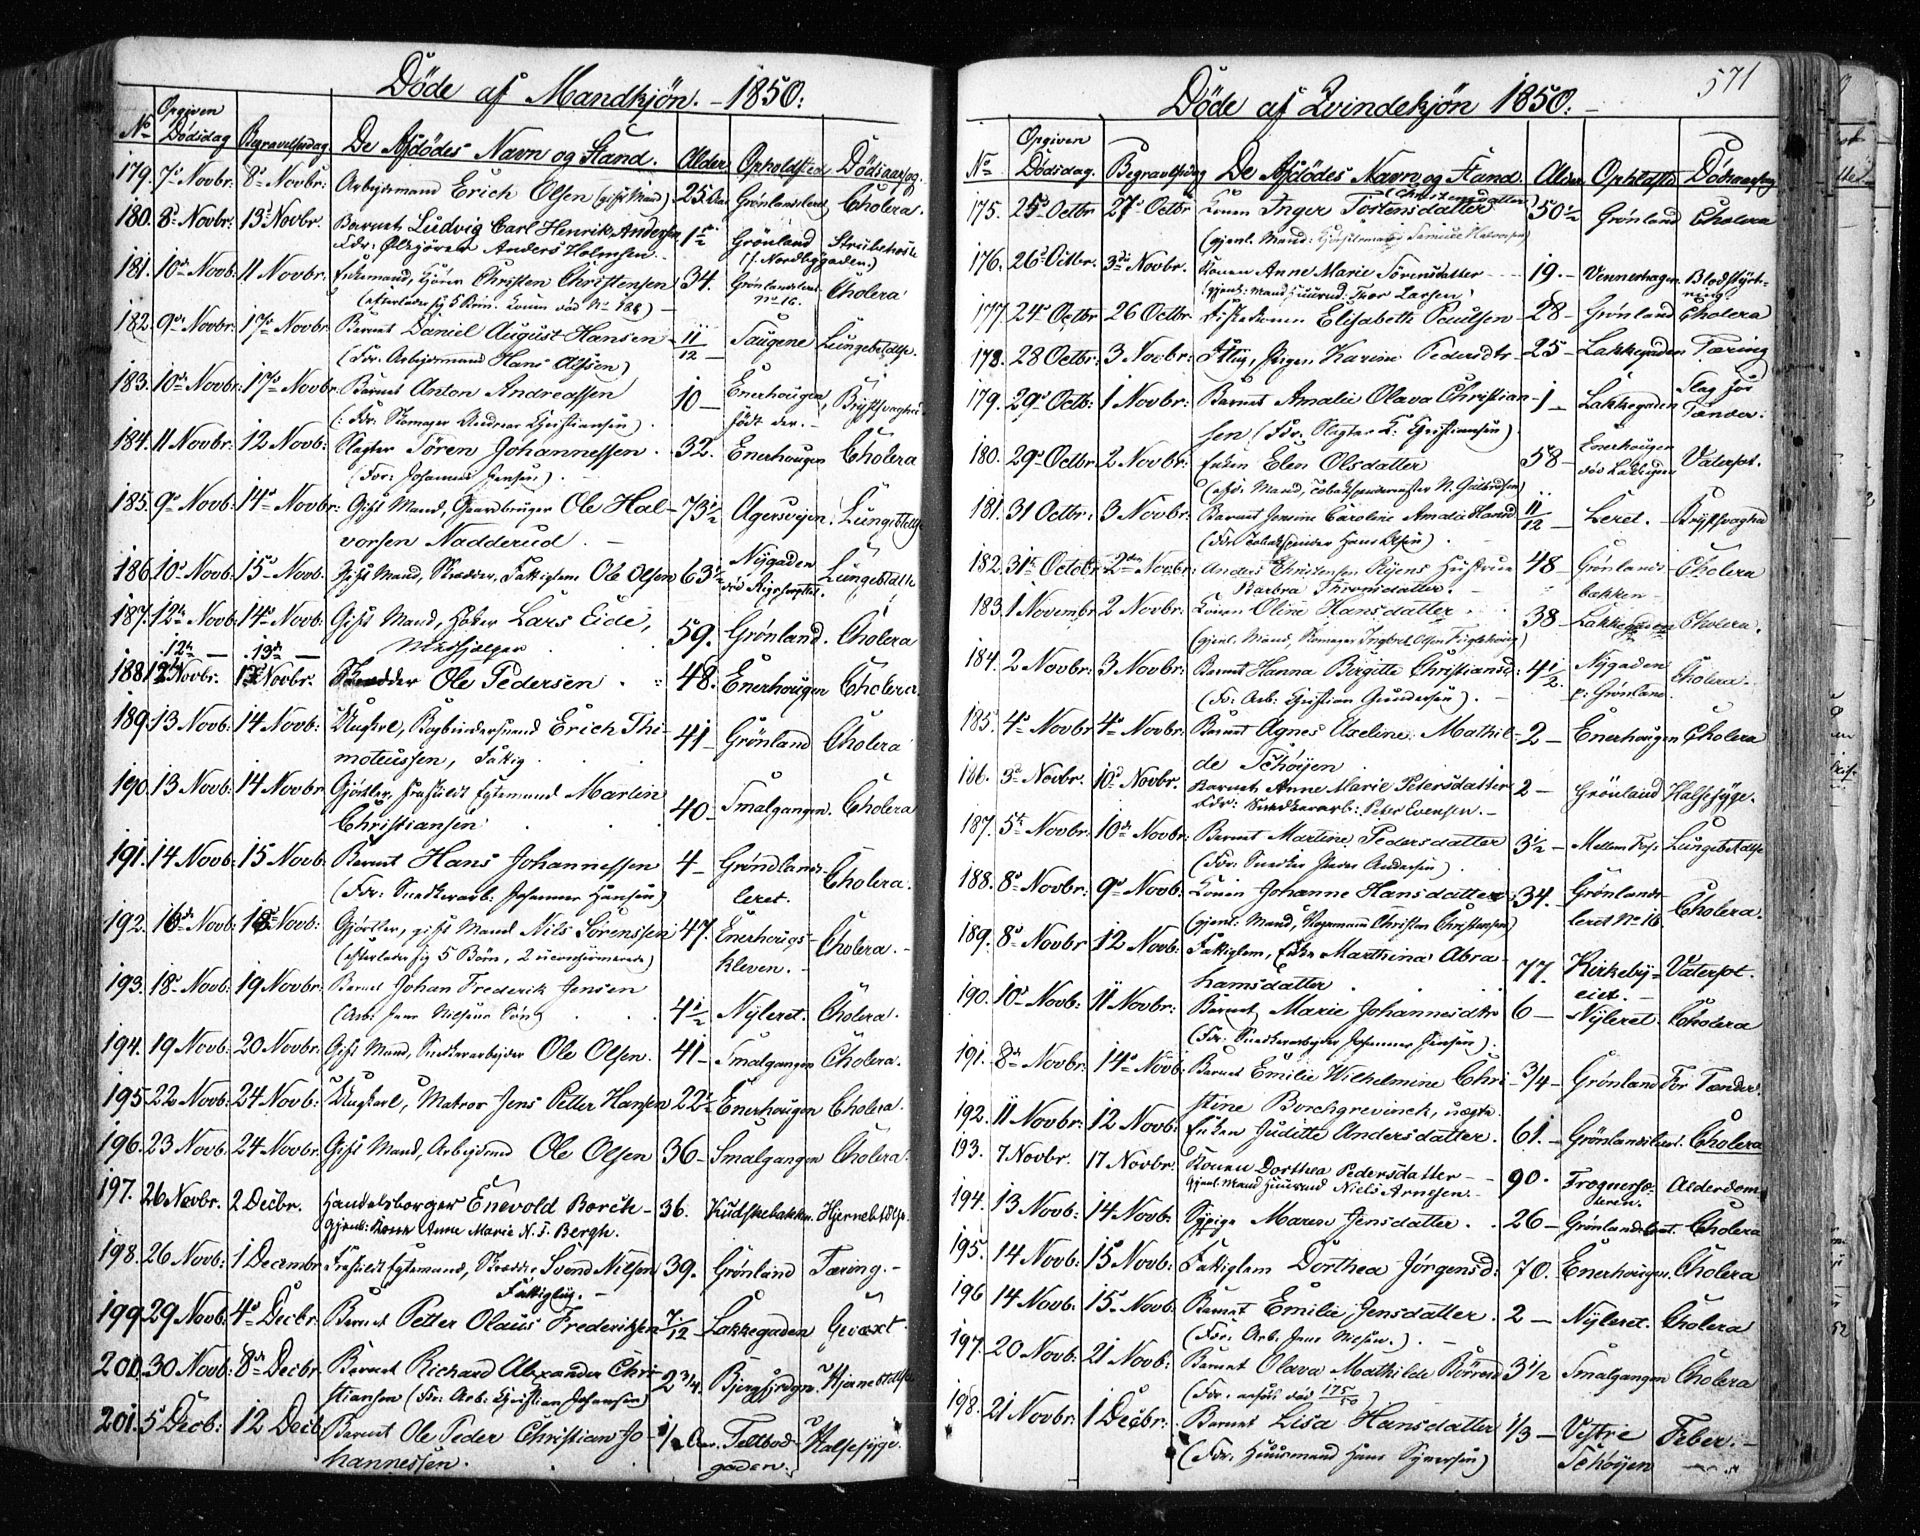 Døde af Mandkjøn. - 1850.
No Opgiven Dødsdag Begravelsesdag De Afdødes Navn og Stand. Alder Opholdsted Dødsaarsag.
179. 7de Novbr. 8de Novbr. Arbeidsmand Erich Olsen (gift Mand) 25 Aar Grønlandsleret Cholera.
180. 8de Novbr. 13de Novbr. Barnet Ludvig Carl Henrik Andersen 1½ Grønland Strubehoste
Fdr: Anders Holmsen (i Nordbygaden.)
181. 10de Novb. 11 Novbr. Enkemand, Christen Christensen 34. Grønlandsleret Cholera
(efterlader sig 5 Børn. Konen død No 188) No 16.
182. 9de Novbr. 17de Novbr. Barnet Daniel August Hansen 11/12 Saugene Lungebetændelse.
(Fdr. Arbeidsmand Hans Olsen)
183. 10de Novbr. 17de Novbr. Barnet Anton Andreassen 10 Enerhaugen Brystsvaghed
(Fdr: Skomager Andreas Christiansen) født der.
184. 11 Novbr. 12 Novb: Slagter Søren Johannessen 32. Enerhougen Cholera
(Fdr: Johannes Jensen)
185. 9de Novb: 14de Novbr: Gift Mand, Gaardbruger Ole Hal- 73½ Agersveien. Lungebetændelse
vorsen Nadderud.
186. 10de Novb. 15de Novb. Gift Mand, Skrædder, Fattiglem Ole Olsen 63½ Nygaden Lungebetændelse
død
187. 12te Novb. 14de Novb. Gift Mand, Høker Lars Eide, 59. Grønland. Cholera
12te — 13de —
188. 12 Novbr. 13 Novbr. Skrædder Ole Pedersen 48. Enerhougen Cholera
189. 13 Novb: 14 Novb: Ungkarl, Bogbindersvend Erich Thi- 41 Grønland Cholera
moteussen, Fattig.
190. 13 Novb. 14 Novbr Gjørtler, fraskildt Egtemand Martin 40 Smalgangen. Cholera
Christiansen
191. 14 Novb: 15 Novb. Barnet Hans Johannessen 4 Grøndlands- Cholera.
(Fdr: Snedkerarb: Johannes Hansen) leret.
192. 16de Novb: 18 Novb: Gjørtler, gift Mand Nils Sørenssen 47. Enerhougs- Cholera.
(efterlader sig 5 Børn, 2 uconfirmerede) kleven.
193. 18de Novb: 19 Novbr: Barnet Johan Frederik Jensen 4½ Nyleret. Cholera.
(Arb: Jens Nilsens Søn)
194. 19 Novb: 20 Novbr. Gift Mand, Snedkerarbeider Ole Olsen. 41 Smalgangen Cholera.
195 22 Novb: 24 Novb: Ungkarl, Matros Jens Petter Hansen 22½ Enerhougen Cholera.
196. 23 Novb. 24 Novbr. Gift Mand, Arbeidsmd Ole Olsen 36 Smalgangen Cholera.
197. 26 Novbr. 2 Decbr. Handelsborger Enevold Borch 36. Kudskebakken Hjernebetændelse
Gjenl: Kone Anna Marie N. F. Bergh.
198. 26 Novb: 1 Decembr Fraskildt Egtemand, Skrædder Svend Nilsen 39. Grønland Tæring.
Fattiglem.
199. 29 Novb. 4de Decbr. Barnet Petter Olaus Frederiksen 7/12 Lakkegaden Gevæxt.
200. 30 Novb: 8de Decbr. Barnet Richard Alexander Chri- 2¾
stiansen (Fdr. Arb: Christian Johansen)
201. 5 Decb: 12 Decb Barnet Ole Peder Christian Jo- ½ Aar. Feltbod- Halsesyge.
hannessen. gaden.
571
Døde af Qvindekjøn 1850.
No Opgiven Dødsdag. Begravelsesdag De Afdødes Navn og Stand. Alder Opholdsted Dødsaarsag
175. 25de Octbr 27de Octbr Konen Inger Tostensdatter (Christensdatter) 50½ Grønland Cholera
(gjenl. Mand: Samuel Halvorsen)
176. 26de Octbr. 3die Novbr. Konen Anne Marie Sørensdatter 19. Vennerhagen Blodstyrt-
(gjenl: Mand Huusmd: Thor Larsen) ning
177. 24de Octbr 26 Octbr. Elisabeth Paulsen 28 Grønland Cholera
178. 28 Octbr: 3 Novbr. Pigen Karine Pedersdtr 25 Lakkegaden Tæring
179. 29de Octb: 1 Novbr: Barnet Amalie Olava Christian- 1 Lakkegaden Slag for
sen (Fdr. Slagter K. Christiansen) Tænder.
180. 29de Octbr 2 Novbr: Enken Elen Olsdatter 58 Enerhougen Vatersot.
død Lakkegaden
181. 31 Octbr: 3 Novbr: Barnet Jensine Caroline Amalie Hansd 11/12 Leret. Brystsvaghed
(Fdr: Tobakspinder Hans Olsen)
182. 31te Octobr 2den Novbr: Anders Christensen Ryens Hustrue 48 Grønlands- Cholera
Barbra Thronsdatter. bækken
183. 1 Novembr 2 Novbr: Konen Oline Hansdatter 38 Lakkegaden Cholera.
(gjenl. Mand, Skomager Ingbret Olsen)
184. 2 Novbr: 3 Novbr: Barnet Hanna Birgitte Christiansd: 4½ Nygaden Cholera.
(Fdr. Arb: Christian Gundersen) p: Grønland.
185. 4de Novbr 4de Novbr: Barnet Agnes Axeline Mathil- 2 Enerhougen Cholera
de Schøijen
186. 3de Novbr. 10de Novbr. Barnet Anne Marie Petersdatter 2 Grønland Halsesyge.
Fdr: Snedkerarb: Peter Evensen.
187. 5te Novbr. 10de Novbr: Barnet Martine Pedersdatter 3½ Mellem Fos: Lungebetændelse
(Fdr: Snedker Peder Andersen)
188. 8de Novbr: 9de Novb: Konen Johanne Hansdatter 34. Grønlands- Cholera.
(gjenl: Mand, Christen Christensen) leret No 16.
189. 8de Novbr 12 Novb: Fattiglem, Enke Marthina Abra- 77. Kirkeby- Vatersot.
hamsdatter eiet.
190. 10de Novb: 11 Novbr: Barnet Marie Johannesdtr 6 Nyleret. Cholera
(Fdr: Snedkerarbeider Johannes Jensen).
191. 8de Novbr: 14de Novb: Barnet Emilie Wilhelmine Chri- 3/4 Grønland For Tænder.
stine Borchgrevinck, uægte.
192. 11 Novbr: 12 Novb: Enken Juditte Andersdatter. 61. Grønlandsleret. Cholera
193. 7 Novbr. 17 Novbr. Konen Dorthea Pedersdatter 90. Frognersæ- Alderdom
Gjenl: Mand Huusmd Niels Arnesen. teren.
194. 13 Novb: 14 Novb: Sypige Maren Jensdatter 26 Grønlandsleret. Cholera
195. 14 Novb: 15de Novb: Fattiglem Dorthea Jörgensd: 70. Enerhougen. Cholera
196 14 Novb: 15de Novb: Barnet Emilie Jensdatter. 2 Nyleret. Cholera
(Fdr. Arb. Jens Nilsen.)
197. 20 Novb: 21 Novb: Barnet Olava Mathilde 3½ Smalgangen Cholera
(Fdr. død 175/50)
198. 21 Novbr: 1 Decbr: Barnet Lisa Hansdatter 1/3 Vestre Feber.
(Fdr: Huusmand Hans Syversen) Schøijen